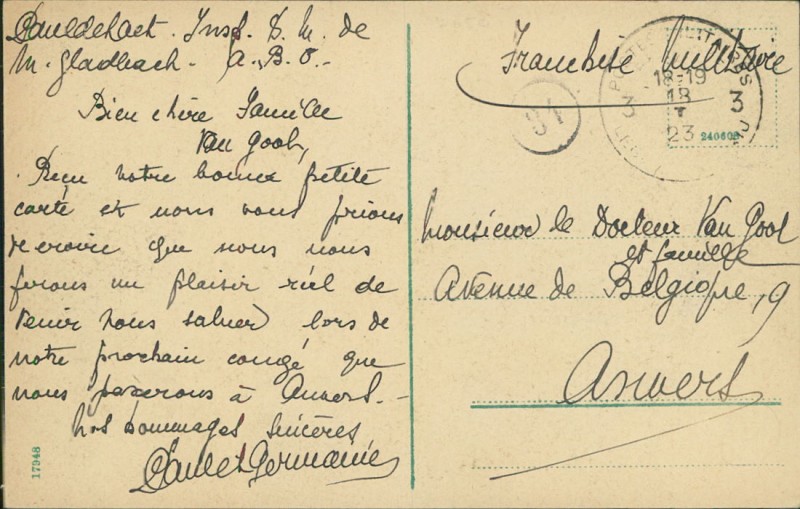 Paul deHaet. Insp. D. M. de
M. Gladbach. A. B. O.-
Bien chère Famille
Van Gool,
Reçu votre bonne petite
carte et nous vous prions
de croire que nous nous
ferons un plaisir réel de
venir vous saluer lors de
notre prochain congé que
nous passerons à Anvers.-
Nos hommages sincères
Paul et Germaine
17948
Franchise Militaire
POSTES MILITAIRES
3 18-19 3
18
23
91
240603
Monsieur le Docteur Van Gool
et famille
Avenue de Belgique, 9
Anvers